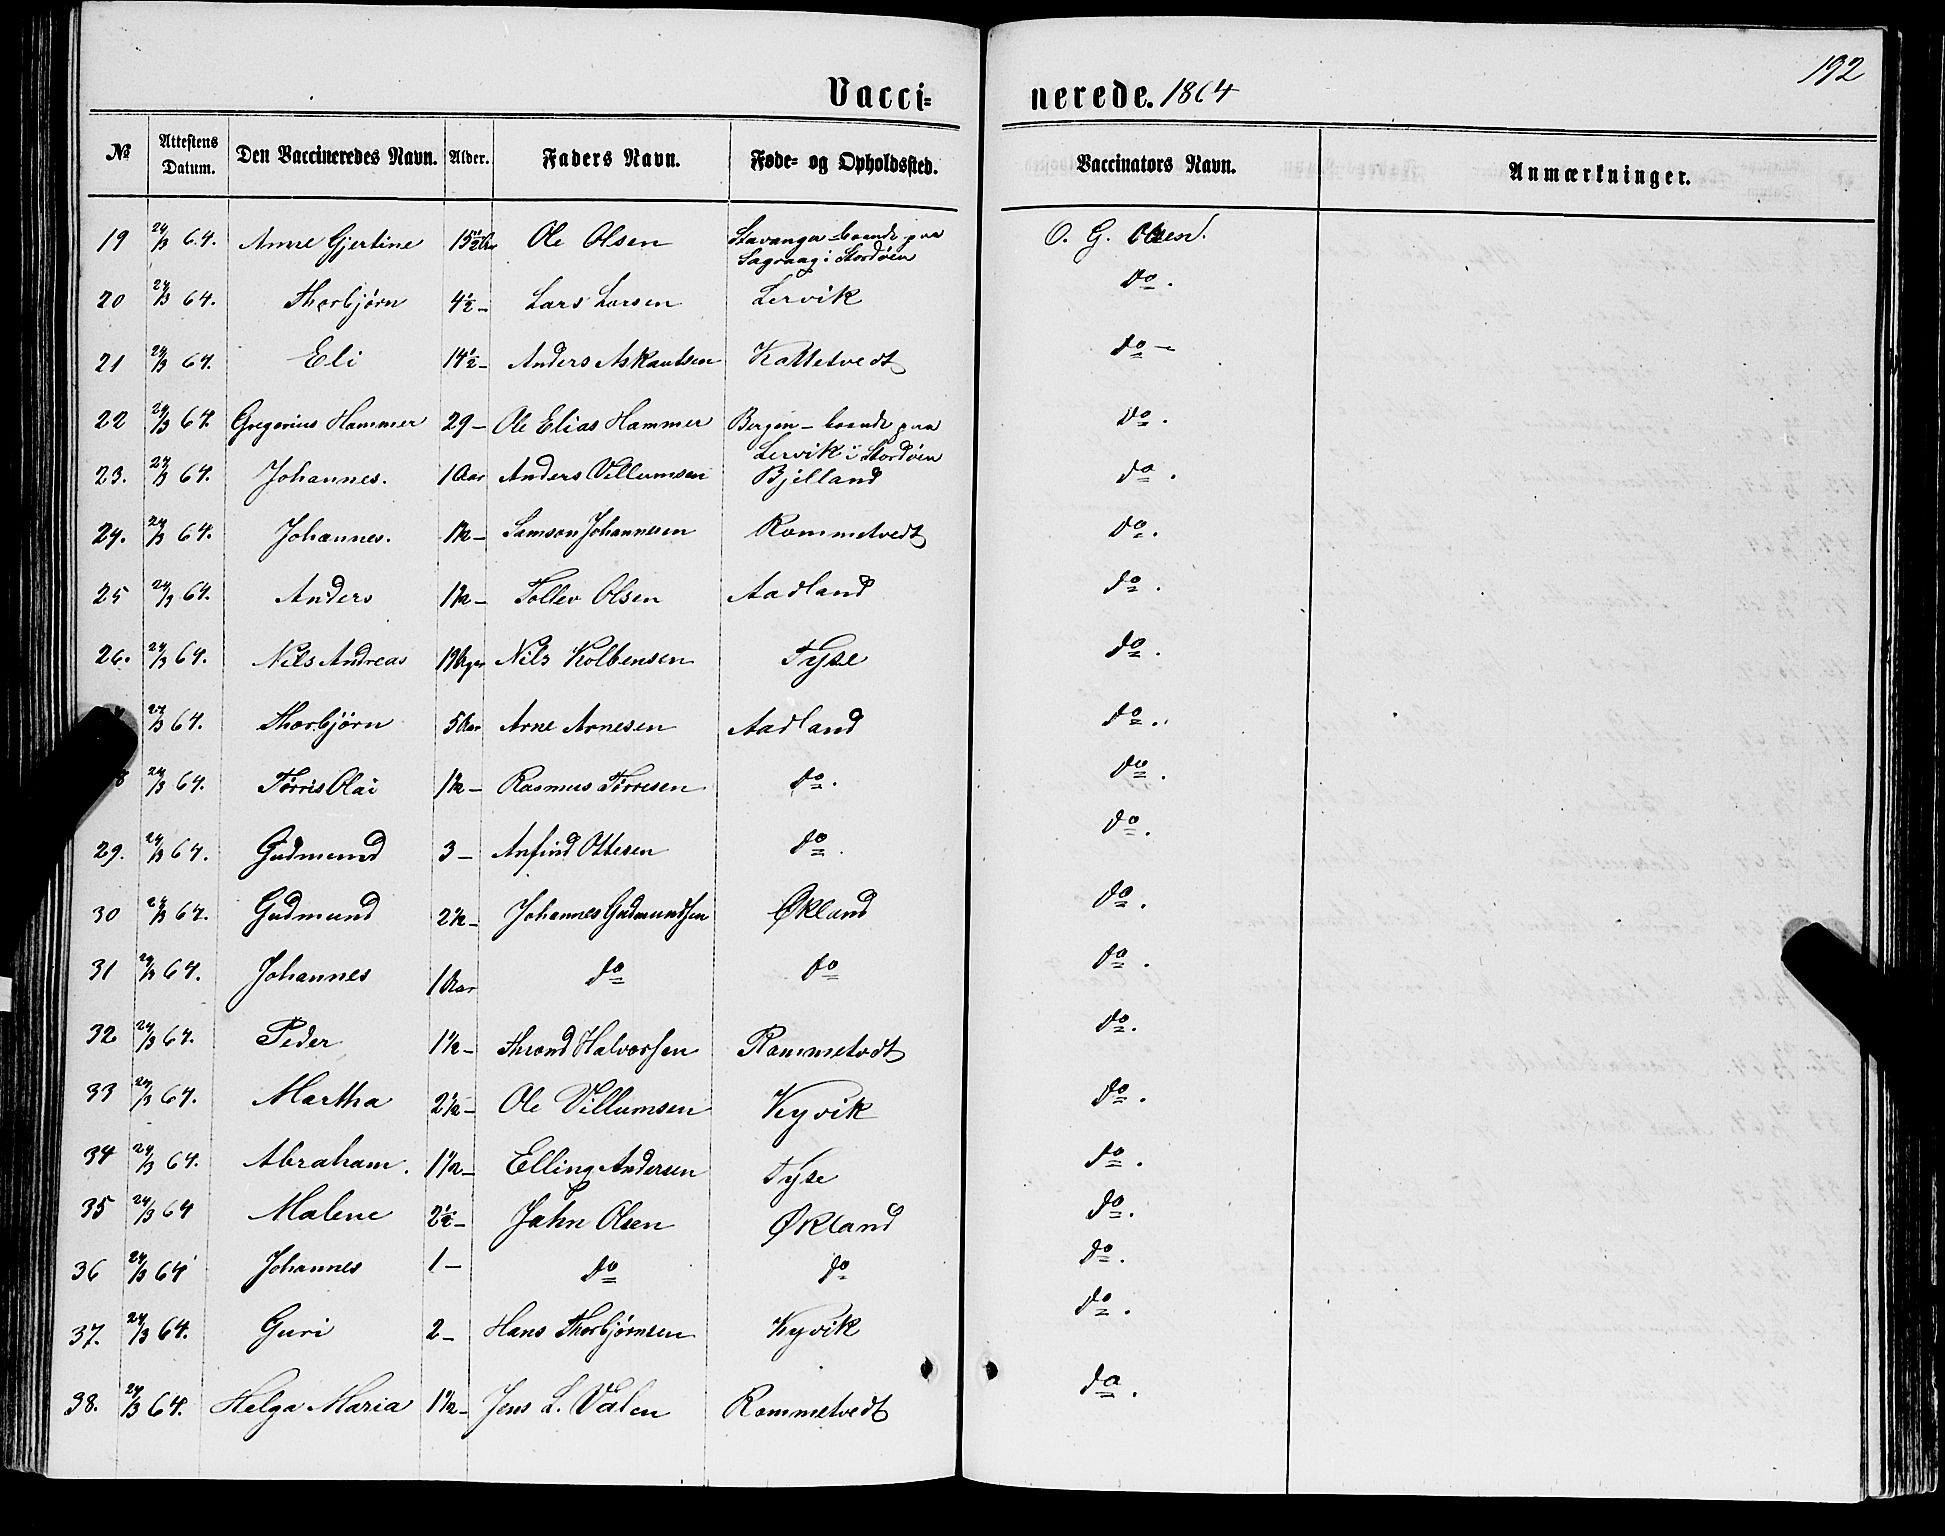 192
Vacci= nerede. 1864
№ | Attestens Datum. | Den Vaccineredes Navn. | Alder. | Faders Navn. | Føde- og Opholdssted. | Vaccinators Navn. | Anmærkninger.
19 | 24/3 64. | Anne Gjertine | 15 1/2 Aar | Ole Olsen | Stavanger boende paa Sagvaag i Stordøen | O. G. Olsen.
20 | 24/3 64. | Thorbjørn | 4 1/2 - | Lars Larsen | Lervik | do.
21 | 24/3 64. | Eli | 14 1/2 - | Anders Askautsen | Kattetvedt | do -
22 | 24/3 64. | Gregorius Hammer | 29 - | Ole Elias Hammer | Bergen - boende paa Lervik i Stordøen | do.
23. | 24/3 64. | Johannes. | 1 Aar | Anders Villumsen | Bjelland | do.
24. | 24/3 64. | Johannes. | 1 1/2 - | Samson Johannesen | Rommetvedt | do.
25 | 24/3 64. | Anders | 1 1/2 - | Tollev Olsen | Aadland | do.
26. | 24/3 64. | Nils Andreas | 19 | Nils Kolbensen | Tyse | do.
24/3 64. | Thorbjørn | 5 Aar | Arne Arnesen | Aadland | do.
8 | 24/3 64. | Tørris Olai | 1 1/2 - | Rasmus Tørresen | do. | do.
29. | 24/3 64. | Gudmund | 3 - | Anfind Ottesen | do. | do.
30 | 24/3 64. | Gudmund | 2 1/2 - | Johannes Gudmundsen | Økland | do.
31 | 24/3 64. | Johannes | 1 Aar | do | do | do.
32 | 24/3 64. | Peder | 1 1/2 - | Thrond Halvorsen | Rommetvdt | do.
33 | 24/3 64. | Martha | 2 1/2 - | Ole Villumsen | Kyvik | do.
34 | 24/3 64. | Abraham. | 1 1/2 - | Elling Andersen | Tyse | do.
35 | 24/3 64 | Malene | 2 1/2 - | Jahn Olsen | Økland | do.
36 | 24/3 64 | Johannes | 1 - | do | do | do.
37. | 24/3 64. | Guri | 2 - | Hans Thorbjørnsen | Kyvik | do.
38. | 24/3 64. | Helga Maria | 1 1/2 - | Jens L. Valen | Rommetvedt | do.